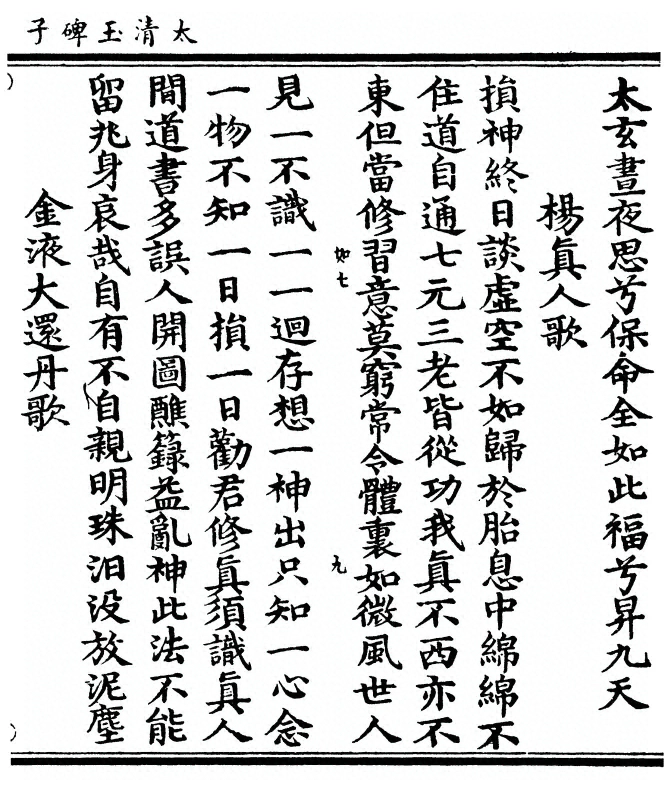 太清玉碑子
太玄晝夜思兮保命全如此福兮昇九天
楊眞人歌
損神終日談虛空不如歸於胎息中綿綿不
住道自通七元三老皆從功我眞不西亦不
東但當修習意莫窮常令體裏如微風世人
如七
九
見一不識一一迴存想一神出只知一心念
一物不知一日損一日勸君修眞須識眞人
間道書多誤人開圖醮籙益亂神此法不能
留兆身哀哉自有不自親明珠汨没放泥塵
金液大還丹歌